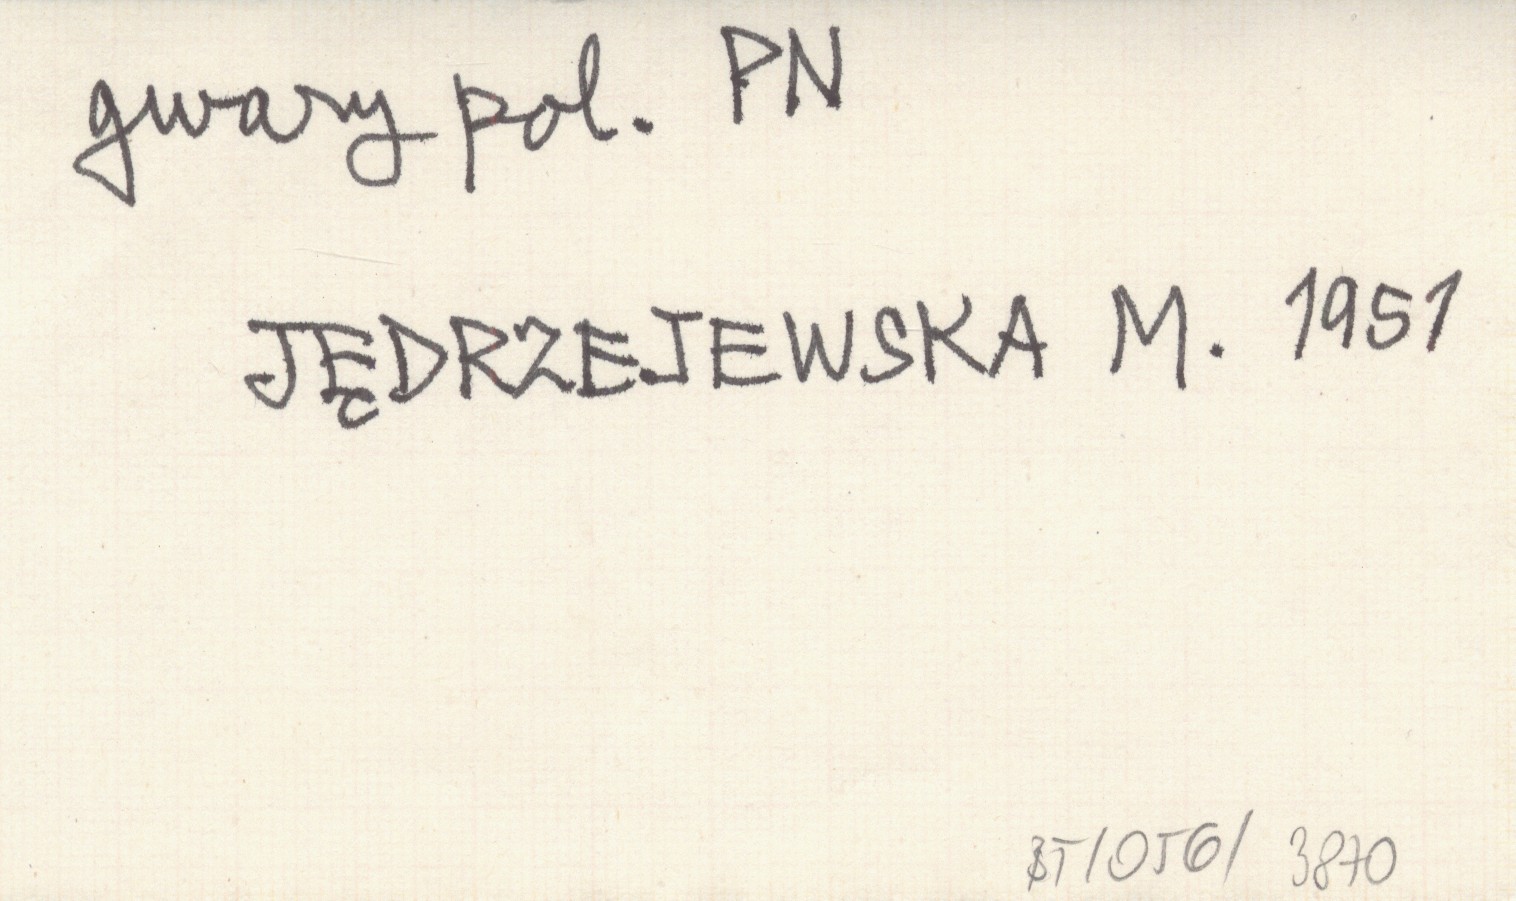 gwary pol. PN
JĘDRZEJEWSKA M. 1951
BT/056/ 3870